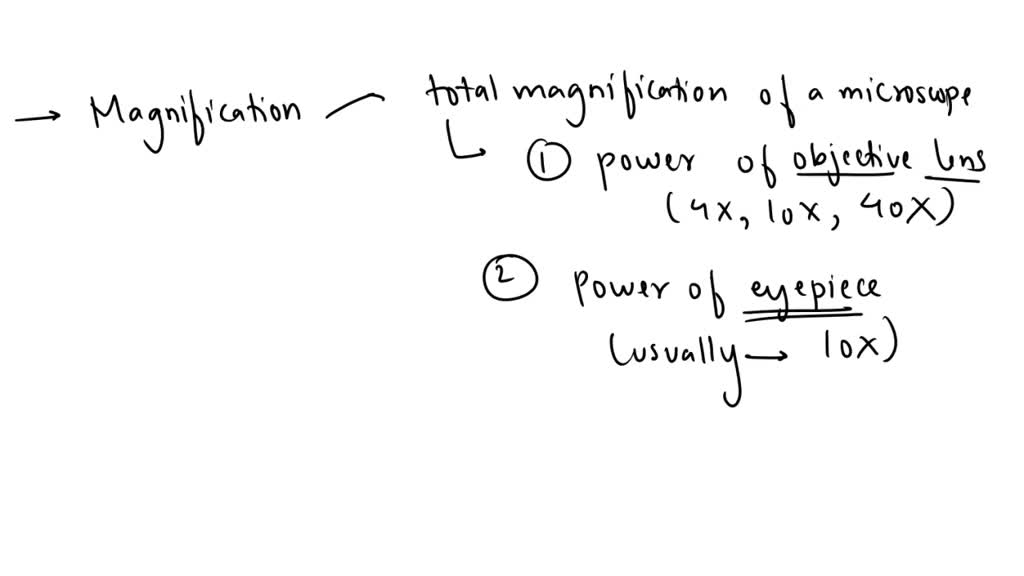 → Magnification — total magnification of a microscope
① power of objective lens
(4x, 10x, 40X)
② Power of eyepiece
(usually → 10x)